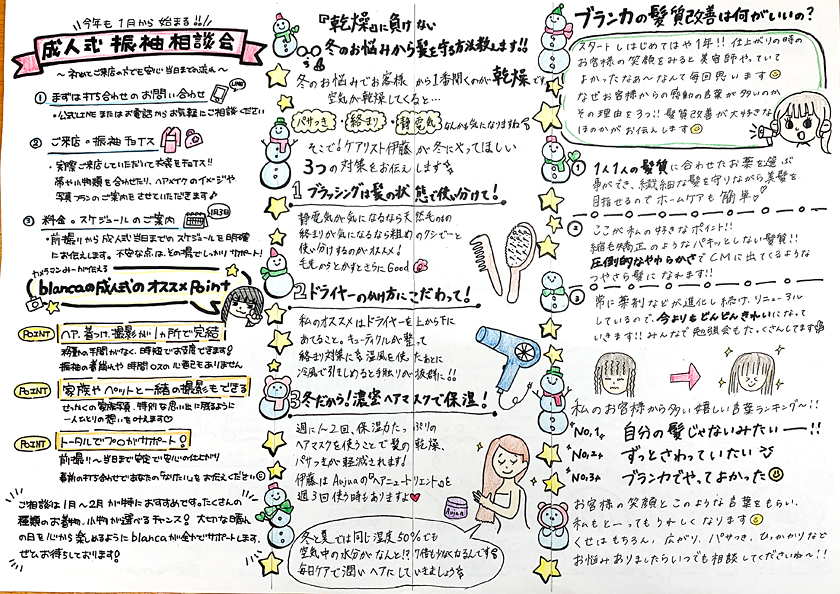 今年も1月から始まる!!
成人式 振袖 相談会
～初めてご来店の方でも安心 当日までの流れ～
① まずは打ち合わせのお問い合わせ
LINE
・公式LINEまたはお電話からお気軽にご相談ください
② ご来店・振袖チョイス
・実際ご来店していただいて衣裳をチョイス!!
帯や小物類を合わせたり、ヘアメイクのイメージや
写真プランのご案内をさせていただきます♪
③ 料金・スケジュールのご案内
1月3日
・前撮りから成人式当日までのスケジュールを明確
にお伝えします。不安な点は、その場でしっかりサポート!
カメラマンみーかが伝える
blancaの成人式のオススメPoint
POINT ヘア、着つけ、撮影が1ヵ所で完結
移動の手間がなく、時短でお支度できます!
振袖の着崩れや時間ロスの心配もありません
POINT 家族やペットと一緒の撮影もできる
せっかくの家族写真、特別な思い出に残るように
一人ひとりの想いを叶えます♡
POINT トータルでプロがサポート!
前撮り～当日まで安定で安心の仕上がり
事前の打ち合わせであなたの「なりたい」をお伝えください☺
ご相談は1月～2月が特におすすめです。たくさんの
種類のお着物、小物が選べるチャンス! 大切な晴れ
の日を心から楽しめるようにblancaが全力でサポートします。
ぜひお待ちしております!
『乾燥』に負けない
冬のお悩みから髪を守る方法教えます!!
冬のお悩みでお客様から1番聞くのが乾燥です
空気が乾燥してくると…
パサつき・絡まり・静電気なんかも気になりますね
そこで!ケアリスト伊藤が冬にやってほしい
3つの対策をお伝えします
1 ブラッシングは髪の状態で使い分けて!
静電気が気になるなら天然毛のもの
絡まりが気になるなら粗めのクシでと
使い分けするのがオススメ!
毛先からとかすとさらにGood
2 ドライヤーのかけ方にこだわって!
私のオススメはドライヤーを上から下に
あてること。キューティクルが整って
絡まり対策に◎温風を使ったあとに
冷風で引きしめると手触りが抜群に!!
3 冬だから!濃密ヘアマスクで保湿!
週に1～2回、保湿力たっぷりの
ヘアマスクを使うことで髪の乾燥、
パサつきが軽減されます!
伊藤はAujuaの『ヘアニュートリエント』を
週3回使う時もありますよ♥
Aujua
冬と夏では同じ湿度50%でも
空気中の水分がなんと!?7倍も少なくなるんです
毎日ケアで潤いヘアにしていきましょう
ブランカの髪質改善は何がいいの?
スタートしはじめてはや1年!! 仕上がりの時の
お客様の笑顔をみると美容師やっていて
よかったなぁ～なんて毎回思います☺
なぜお客様からの感動の言葉が多いのか
その理由を3つ!! 髪質改善が大好きな
ほのかがお伝えします☺
① 1人1人の髪質に合わせたお薬を選ぶ
事ができ、繊細な髪を守りながら美髪を
目指せるのでホームケアも簡単♡
② ここが私の好きなポイント!!
縮毛矯正のようなパキッとしない髪質!!
圧倒的なやわらかさでCMに出てくるような
つやさら髪になれます!!
③ 常に薬剤などが進化し続け、リニューアル
しているので、今よりもどんどんきれいになって
いきます!! みんなで勉強会もたっくさんしてます
私のお客様から多い嬉しい言葉ランキング～!!
No.1 自分の髪じゃないみたいー!!
No.2 ずっとさわっていたい
No.3 ブランカでやってよかった☺
お客様の笑顔とこのような言葉をもらい、
私もとーってもうれしくなります☺
くせはもちろん、広がり、パサつき、ひっかかりなど
お悩みありましたらいつでも相談してくださいね～!!